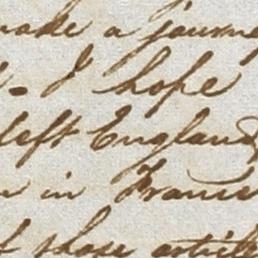 make a journey
. I hope
left England
in France
of those articles